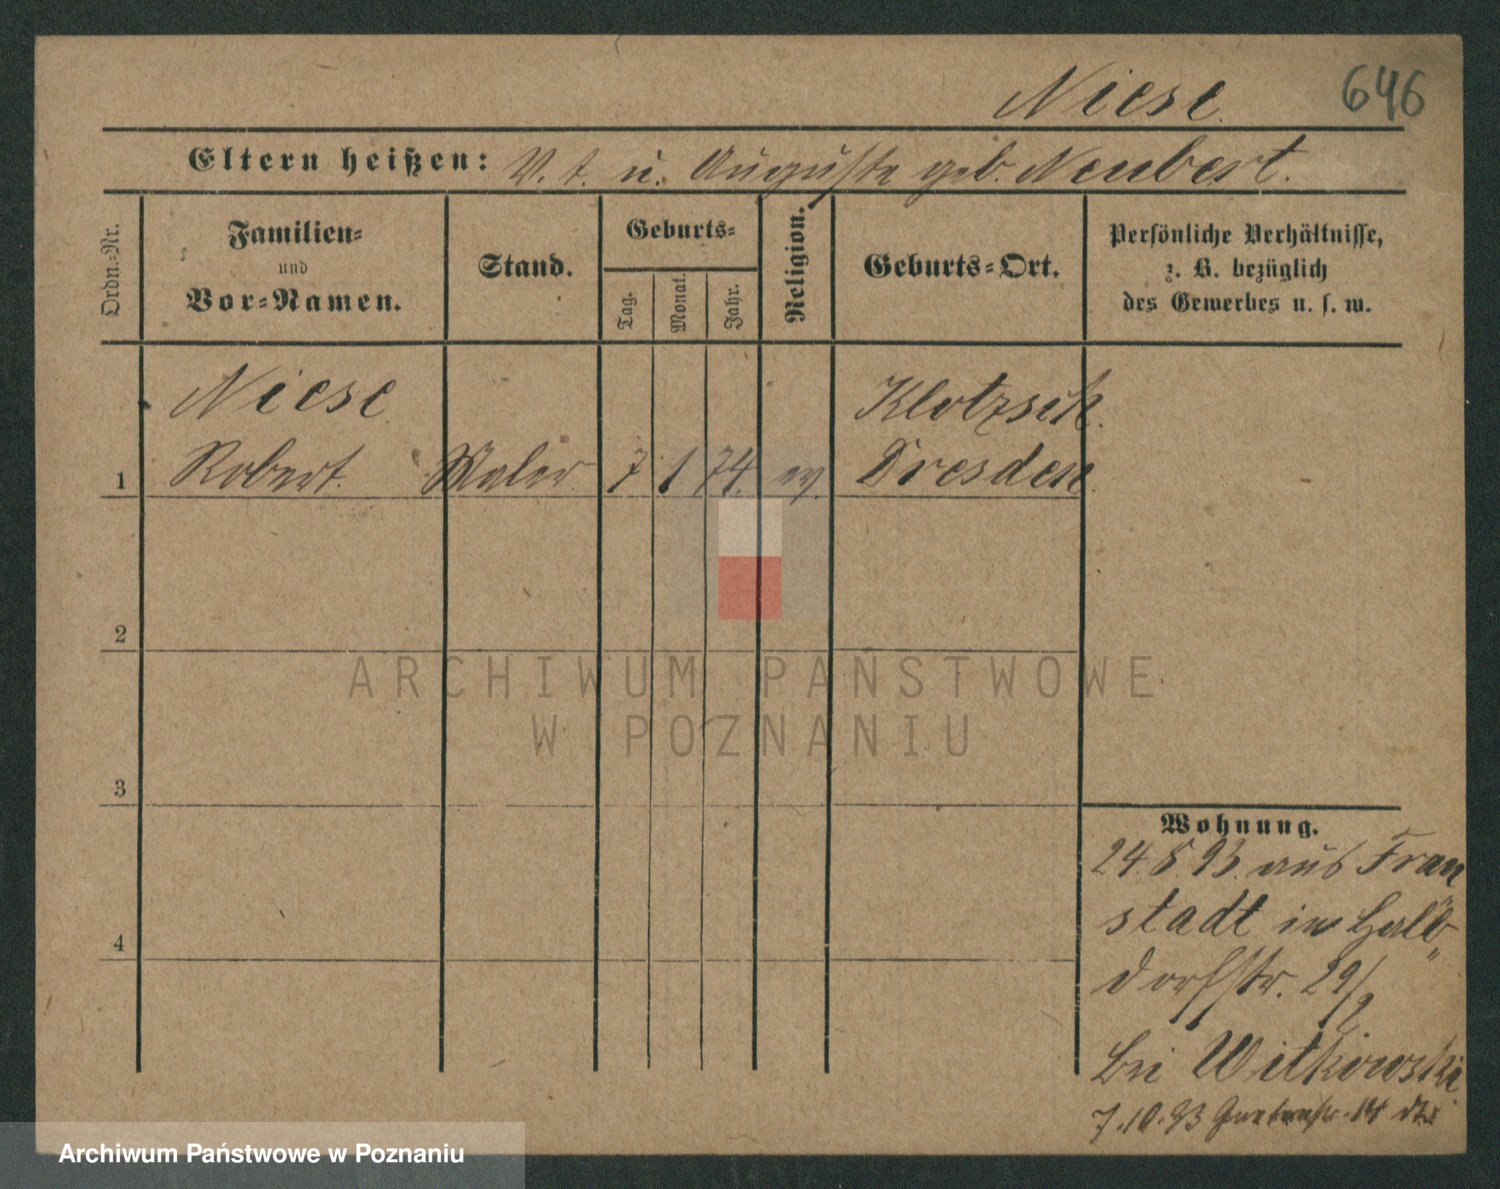 Niese. 646
Eltern heißen: V. t. u. Auguste geb. Neubert.
Ordn.-Nr.
Familien-
und
Vor-Namen.
Stand.
Geburts-
Tag.
Monat.
Jahr.
Religion.
Geburts-Ort.
Persönliche Verhältnisse,
z. B. bezüglich
des Gewerbes u. s. w.
Niese Klotzsch.
1 Robert. Maler 7 1 74. ev. Dresden.
2
3
4
Wohnung.
24. 8 93. aus Frau
stadt in Halb-
dorfstr. 29/2.
bei Witkowski
7.10.93 14
ARCHIWUM PAŃSTWOWE
W POZNANIU
Archiwum Państwowe w Poznaniu